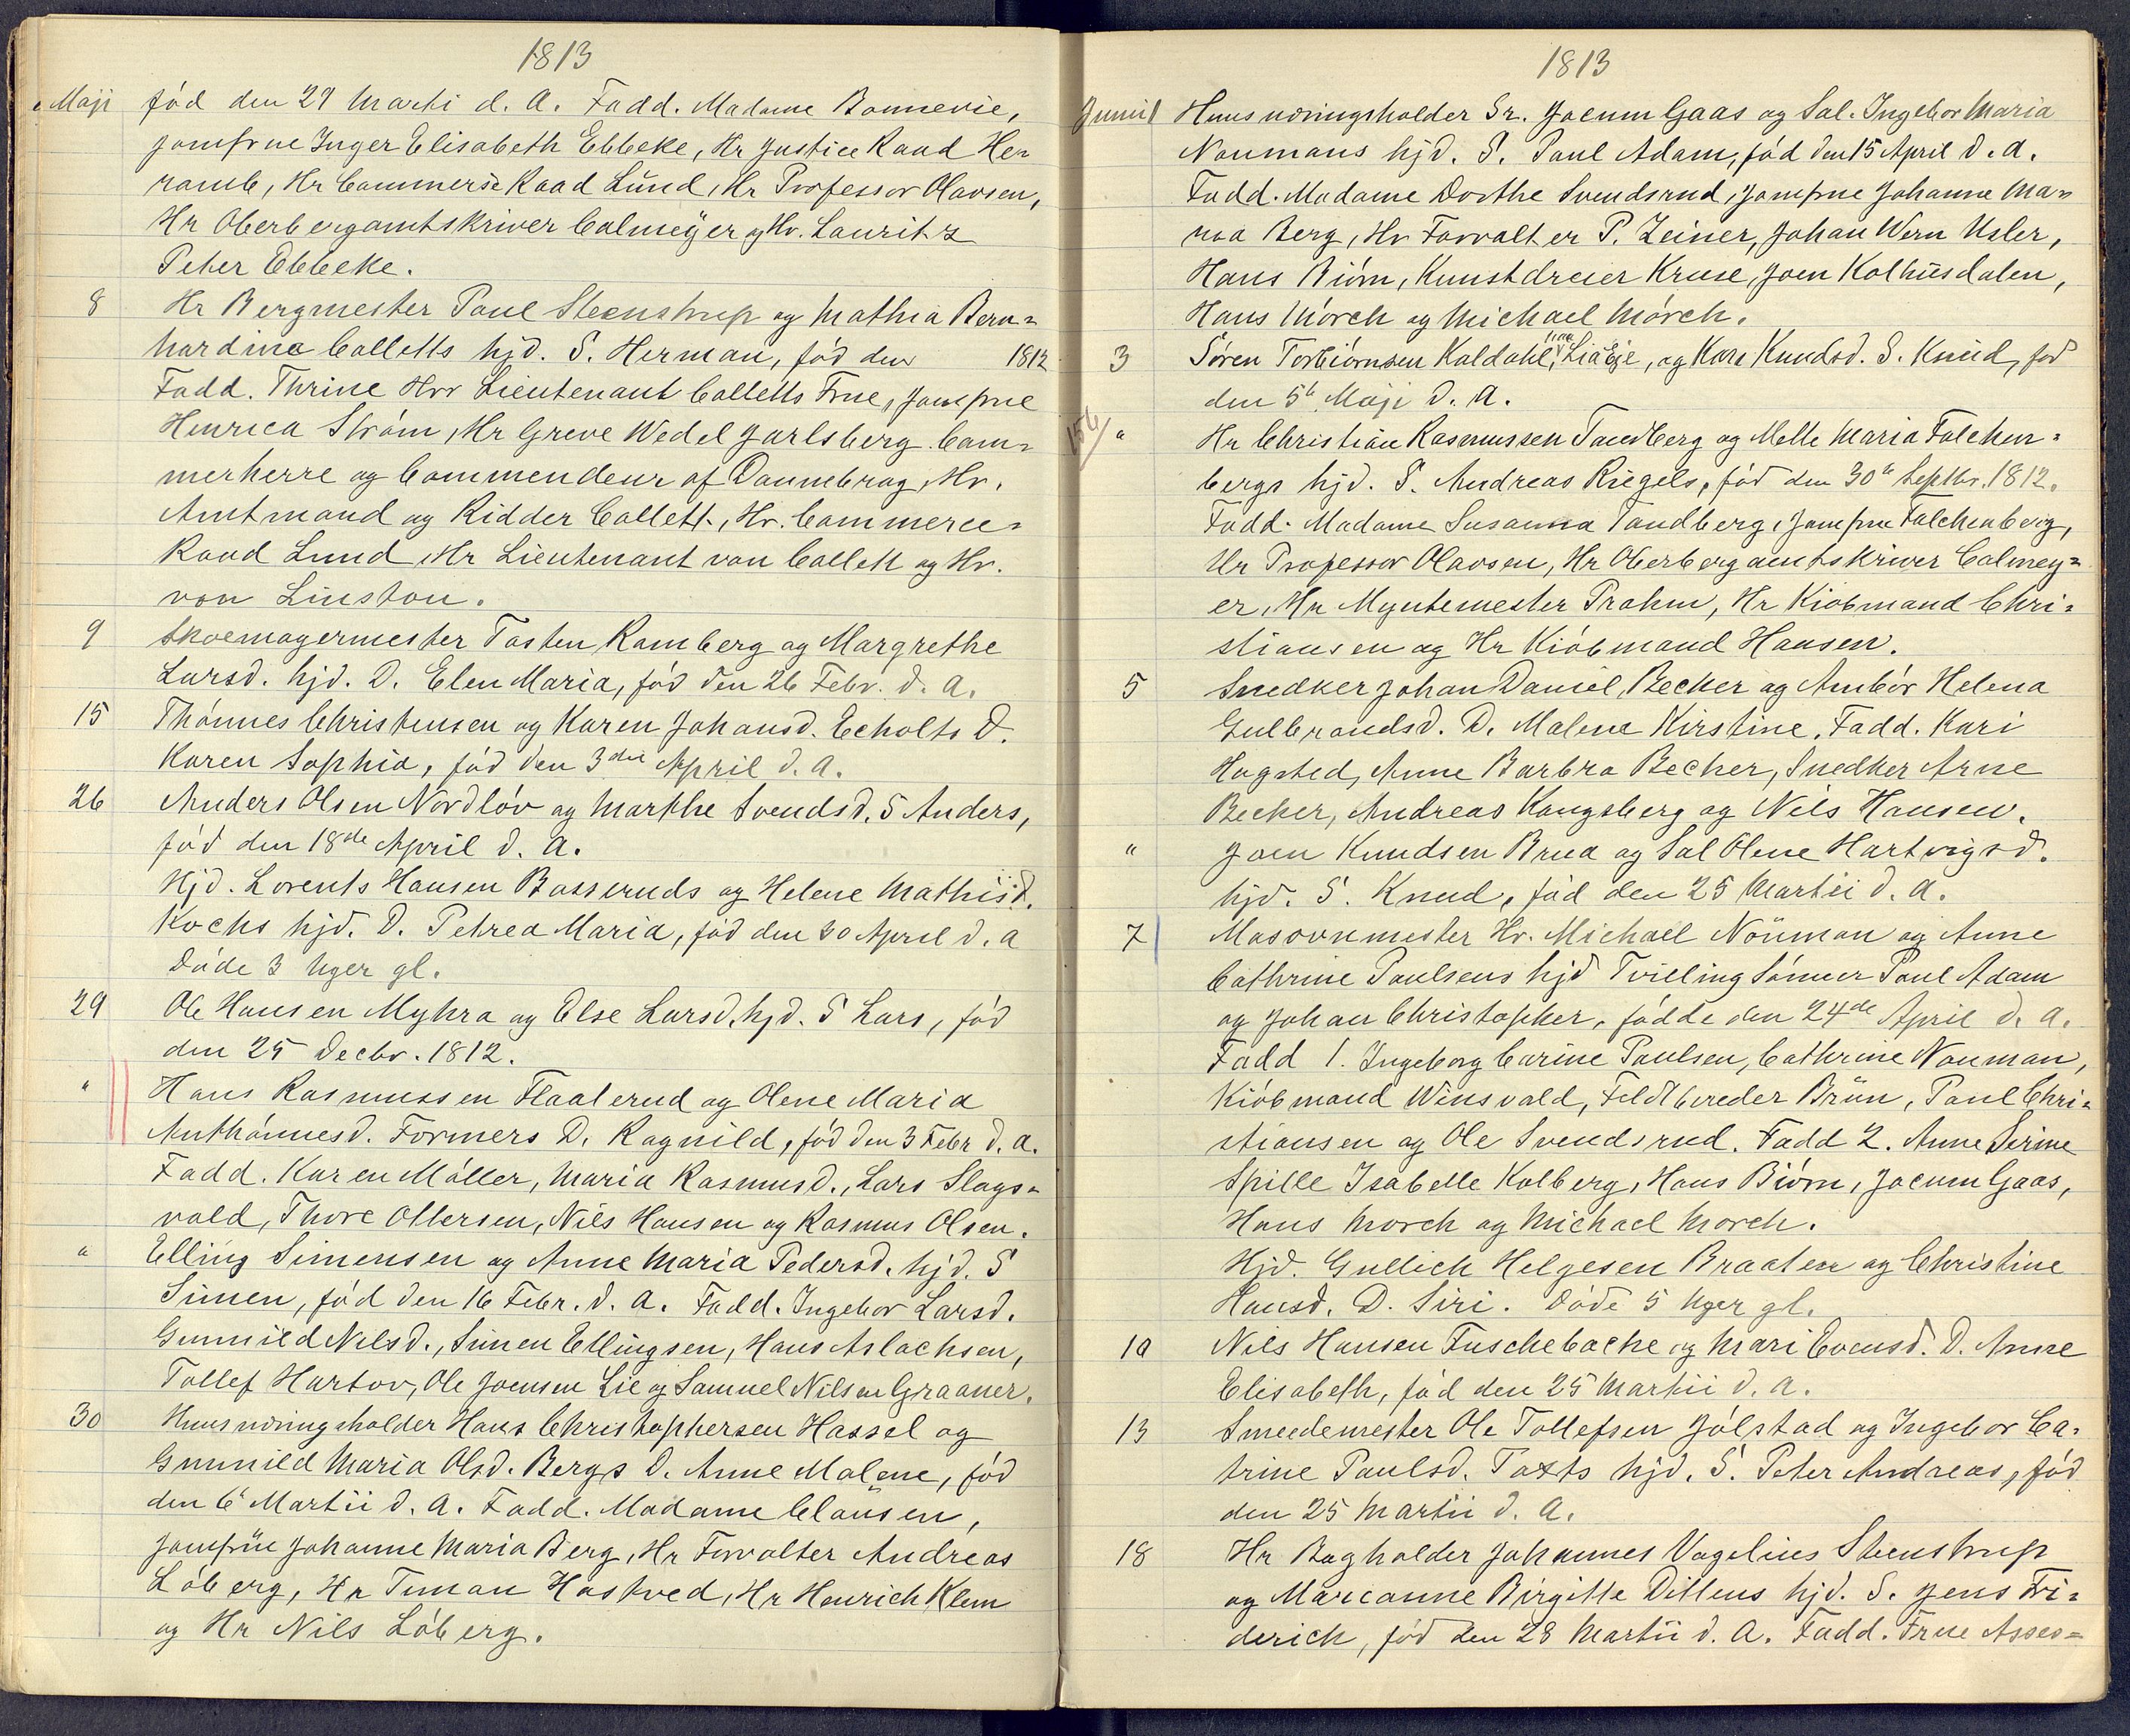 1813
Maji fød den 29 Marti d. A. Fadd. Madame Bonnevie,
Jomfrue Inger Elisabeth Ebbeke, Hr Justice Raad Her-
ramb, Hr Commerse Raad Lund, Hr Professor Olavsen,
Hr Oberbergamtskriver Calmeÿer og Hr. Lauritz
Peter Ebbeke.
8 Hr Bergmester Poul Steenstrup og Mathia Bern-
hardine Colletts hjd. S. Herman, fød den 1812
Fadd. Thrine Hrr Lieutenant Colletts Frue, Jomfrue
Henrica Strøm, Hr Greve Wedel Jarlsberg Cam-
merherre og Commendeur af Dannebrog, Hr.
Amtmand og Ridder Collett, Hr. Commerce-
Raad Lund, Hr Lieutenant von Collett og Hr.
von Linstou.
9 Skoemagermester Tosten Ramberg og Margrethe
Larsd. hjd. D. Elen Maria, fød den 26 Febr. d. A.
15 Thønnes Christensen og Karen Johansd. Echolts D.
Karen Sophia, fød den 3die April d. A.
26 Anders Olsen Nordløv og Marthe Svendsd. S Anders,
fød den 18de April d. A.
Hjd. Lorents Hansen Basseruds og Helene Mathisd.
Kochs hjd. D. Petrea Maria, fød den 30 April d. a
Døde 3 Uger gl.
29 Ole Hansen Myhra og Else Larsd. hjd. S Lars, fød
den 25 Decbr. 1812.
" Hans Rasmussen Flaaterud og Olene Maria
Anthønnesd. Formers D. Ragnild, fød den 3 Febr d. a.
Fadd. Karen Møller, Maria Rasmusd., Lars Slags-
vold, Thore Ottersen, Nils Hansen og Rasmus Olsen.
" Elling Simensen og Anne Maria Pedersd. hjd. S
Simen, fød den 16 Febr. d. A. Fadd. Ingebor Larsd.
Gunnild Nilsd., Simen Ellingsen, Hans Aslachsen,
Tollef Hartov, Ole Joensen Lie og Samuel Nilsen Graaner.
30 Huusnæringsholder Hans Christophersen Hassel og
Gunnild Maria Olsd. Bergs D. Anne Malene, fød
den 6t Martii d. A. Fadd. Madame Clausen,
Jomfrue Johanne Maria Berg, Hr Forvalter Andreas
Løberg, Hr Timan Hostved, Hr Henrich Klem
og Hr Nils Løberg.
1813
Junii 1 Huusnæringsholder Sr. Jocum Gaas og Sal. Ingebor Maria
Noumans hjd. S. Poul Adam, fød den 15 April d. A.
Fadd. Madame Dorthe Svendsrud, Jomfrue Johanne Ma-
ria Berg, Hr Forvalter P. Zeiner, Johan Wern Usler,
Hans Biørn, Kunstdreier Kruse, Joen Kolhusdalen,
Hans Mørch og Michael Mørch.
3 Søren Torbiørnsen Koldahl, Lia Eje, og Kari Knudsd. S. Knud, fød
den 5te Maji d. A.
" Hr Christian Rasmussen Tandberg og Mette Maria Falchen-
bergs hjd. S. Andreas Riegels, fød den 30te Septbr. 1812.
Fadd. Madame Susanna Tandberg, Jomfrue Falchenberg,
Hr Professor Olavsen, Hr Oberbergamtskriver Calmey-
er, Hr Myntemester Prahm, Hr Kiøbmand Chri-
stiansen og Hr Kiøbmand Hansen.
5 Snedker Johan Daniel Becker og Ambør Helena
Gulbrandsd. D. Malene Kirstine. Fadd. Kari
Hagsted, Anne Barbra Becher, Snedker Arne
Becker, Andreas Kongsberg og Nils Hansen.
" Joen Knudsen Brua og Sal Olene Hartvigsd.
hjd. S. Knud, fød den 25 Martii d. A.
7 Masovnmester Hr. Michael Nouman og Anne
Cathrine Paulsens hjd Tvilling Sønner Poul Adam
og Johan Christopher, fødde den 24de April d. A.
Fadd 1. Ingeborg Carine Paulsen, Cathrine Nouman,
Kiøbmand Winsvold, Feldtbereder Brün, Poul Chri-
stiansen og Ole Svendsrud. Fadd 2. Anne Serine
Spille Isabelle Kolberg, Hans Biørn, Jocum Gaas,
Hans Morch og Michael Morch.
Hjd. Gullich Helgesen Braaten og Christine
Hansd. D. Siri. Døde 5 Uger gl.
10 Nils Hansen Fuschebache og Mari Evensd. D. Anne
Elisabeth, fød den 25 Martii d. A.
13 Smedemester Ole Tollefsen Jølstad og Ingebor Ca-
trine Paulsd. Taxts hjd. S. Peter Andreas, fød
den 25 Martii d. A.
18 Hr Bogholder Johannes Vogelius Steenstrup
og Marianne Birgitte Dittens hjd. S. Jens Fri-
derich, fød den 28 Martii d. A. Fadd. Frue Asses-